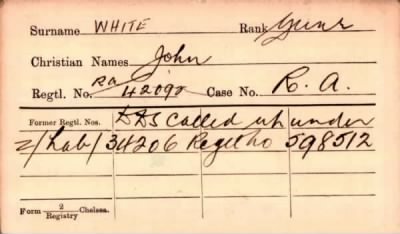 Surname WHITE Rank Gunr
Christian Names John
RA
Regtl. No. 42090 Case No. R. A.
Former Regtl. Nos. called up under
2/Lab/34206 Regtl no 598512
Form 2 Registry Chelsea.